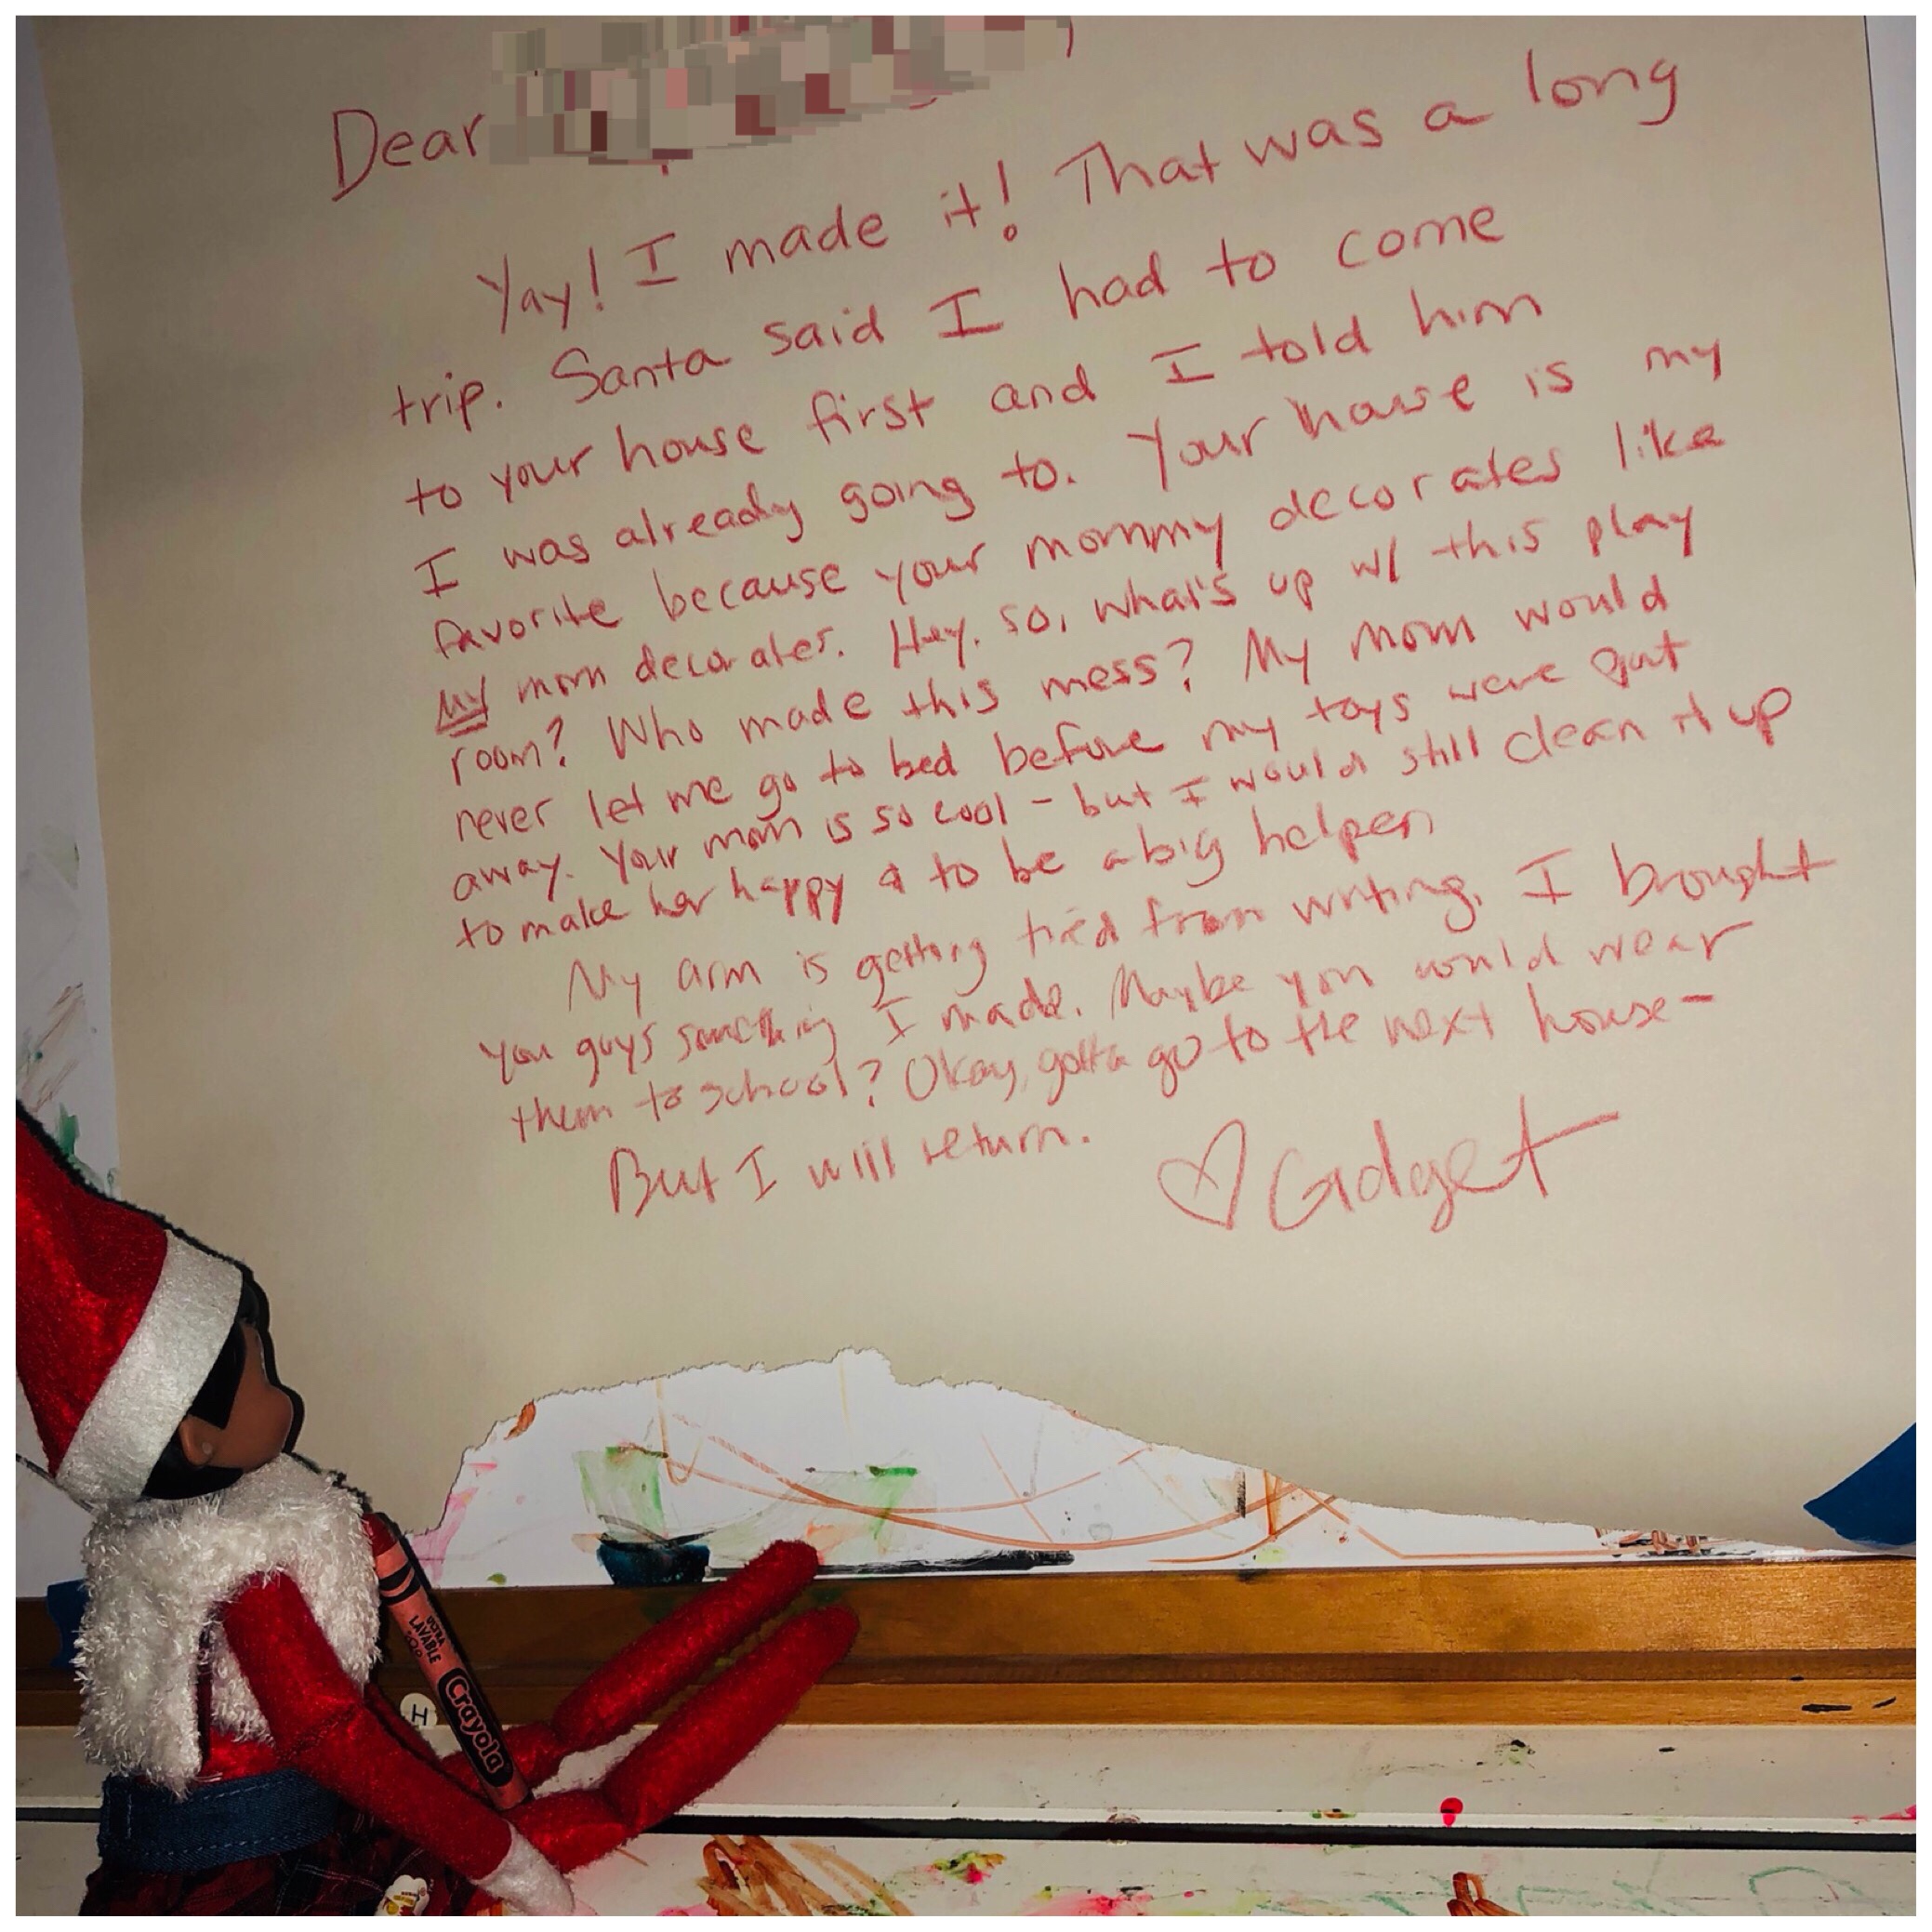 Dear
Yay! I made it! That was a long
trip. Santa said I had to come
to your house first and I told him
I was already going to. Your house is my
favorite because your mommy decorates like
my mom decorates. Hey, so, what's up w/ this play
room? Who made this mess? My mom would
never let me go to bed before my toys were put
away. Your mom is so cool - but I would still clean it up
to make her happy & to be a big helper.
My arm is getting tired from writing. I brought
you guys something I made. Maybe you would wear
them to school? Okay, gotta go to the next house-
But I will return.
♡ Gadget
ULTRA
LAVABLE
Crayola
H